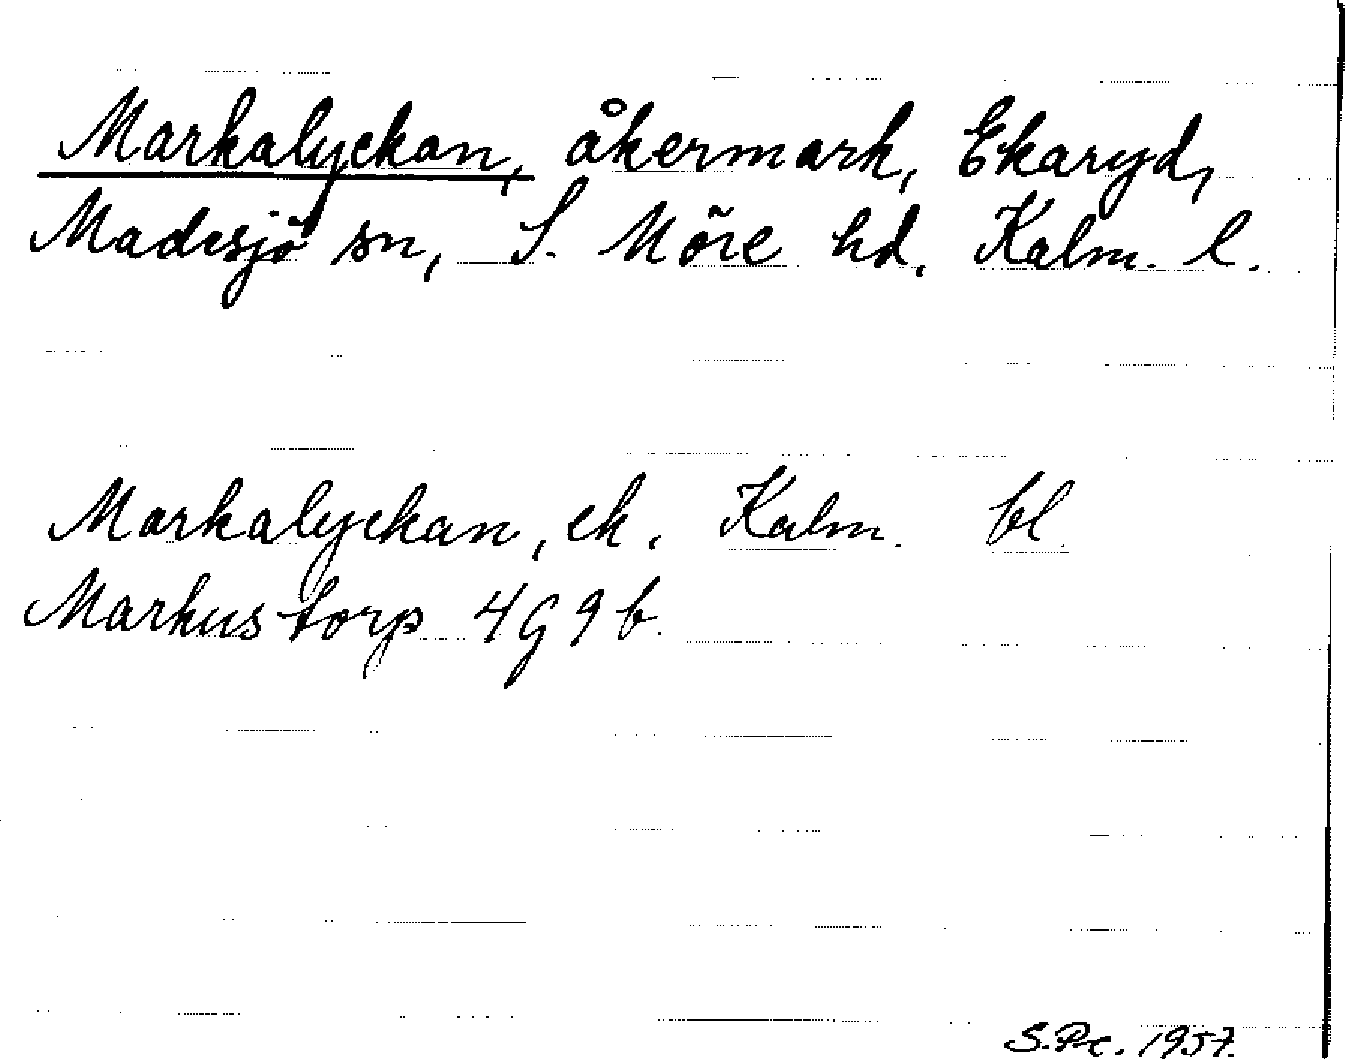 Markalyckan, åkermark, Ekaryd,
Madesjö sn, S. Möre hd, Kalm. l.
Markalyckan, ek. Kalm. bl.
Markustorp 4G9b.
S.Pe. 1957.